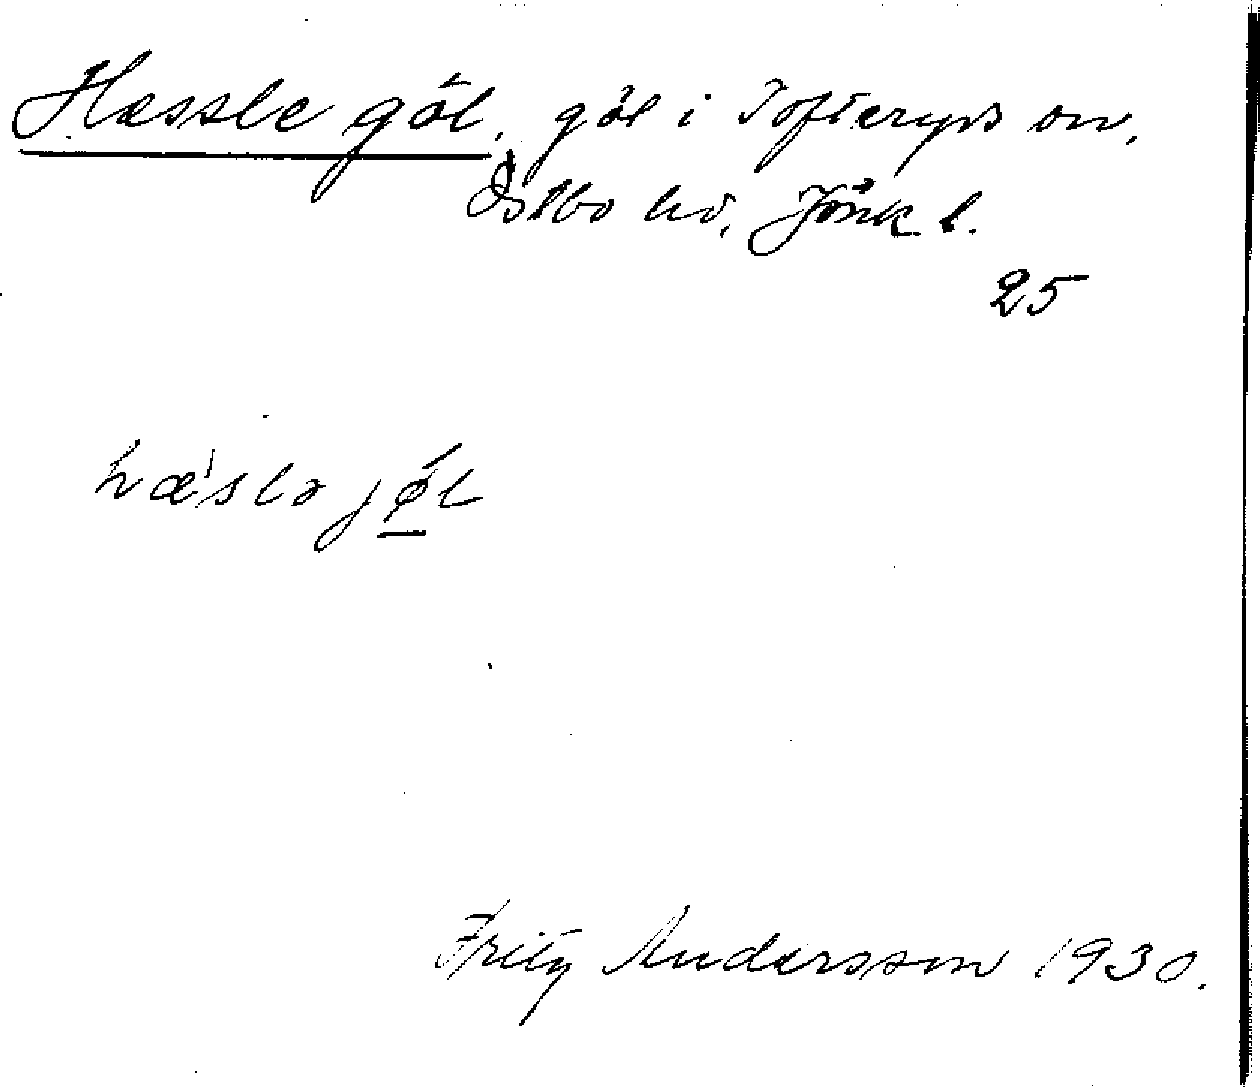 Hassle göl, göl i Tofteryds sn,
Östbo hd, Jönk l.
25
hæ'slə jǿ̱l
Fritz Andersson 1930.